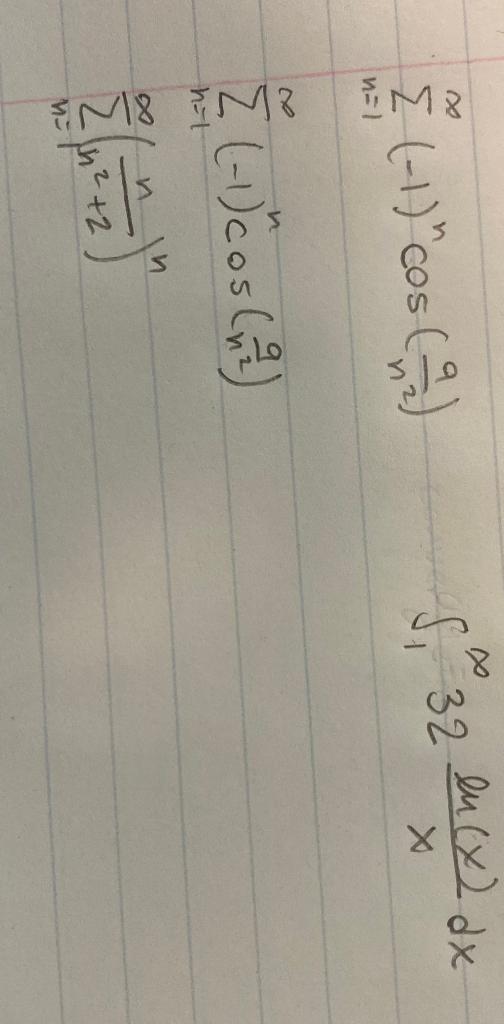 ∞ ∑ n=1 (-1)ⁿ cos(9/n²) ∫₁^∞ 32 ln(x)/x dx
∞ ∑ n=1 (-1)ⁿ cos(9/n²)
∞ ∑ n=1 (n/(n²+2))ⁿ